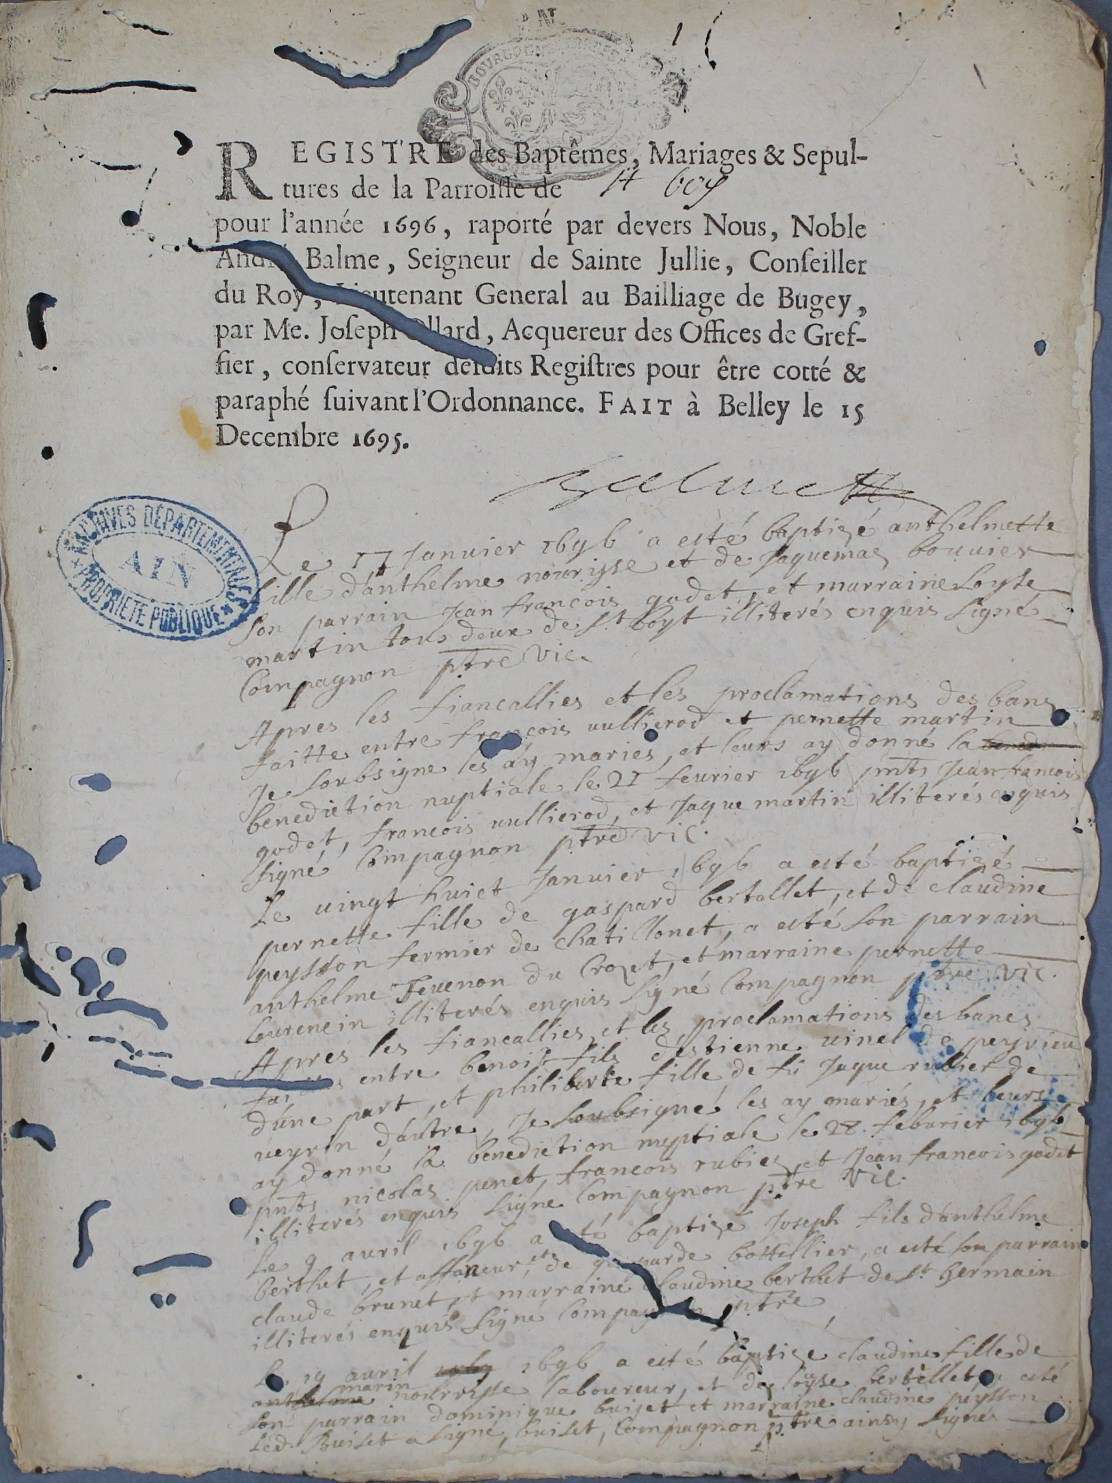 REGISTRE des Baptêmes, Mariages & Sepul-
tures de la Parroisse de St boys
pour l'année 1696, raporté par devers Nous, Noble
André Balme, Seigneur de Sainte Jullie, Conseiller
du Roy, Lieutenant General au Bailliage de Bugey,
par Me. Joseph Ollard, Acquereur des Offices de Gref-
fier, conservateur desdits Registres pour être cotté &
paraphé suivant l'Ordonnance. FAIT à Belley le 15
Decembre 1695.
Balme
ARCHIVES DÉPARTEMENTALES
AIN
* PROPRIÉTÉ PUBLIQUE *
Le 17 Janvier 1696 a esté baptizé anthelmette
fille d'anthelme nourisse et de Jaquemaz bouvier
son parrain Jean francois godet, et marraine Loyse
martin tous deux de St boyt illiterés enquis signé
Compagnon ptre vic.
Apres les fiancallies et les proclamations des bans
faitte entre francois vullierod et pernette martin
Je soubsigne les ay mariés, et leurs ay donné la
benediction nuptiale le 21 feurier 1696 pnts Jean francois
godet, francois vullierod, et Jaque martin illiterés enquis
signé Compagnon ptre vic.
Le vingt huict Janvier 1696 a esté baptizé
pernette fille de gaspard bertollet, et de claudine
peysson fermier de chatillonet, a esté son parrain
anthelme Tevenon du Crozet, et marraine pernette
Laurencin illiterés enquis signé Compagnon ptre vic.
Apres les fiancallies et les proclamations des bancs
entre benoit fils d'estienne vinel de peyrieu
d'une part, et philiberte fille de fü Jaque rubier de
veyrin d'autre, Je soubsigné les ay mariés, et leurs
ay donné la benediction nuptiale le 28 feburier 1696
pnts nicolas penet, francois rubier et Jean francois godet
illiterés enquis signé Compagnon ptre vic.
Le 9 avril 1696 a esté baptizé Joseph fils d'anthelme
berthet, et affaneur, et de gasparde bottellier, a esté son parrain
claude brunet, et marraine claudine berthet de St germain
illiterés enquis signé Compagnon ptre
Le 19 avril 1696 a esté baptize claudine fille de
marin nourrisse laboureur, et de loyse bertellet, a esté
son parrain dominique buiset et marraine claudine peysson
led. Buiset a signé, buiset, Compagnon ptre ainsy signés